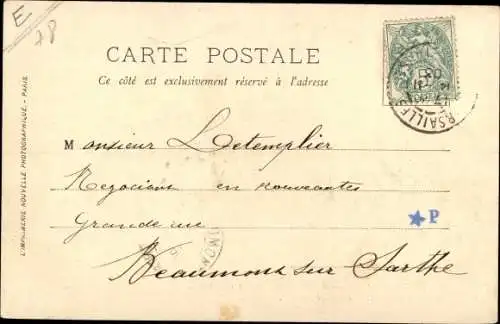 E
78
CARTE POSTALE
Ce côté est exclusivement réservé à l'adresse
Monsieur Letemplier
Negociant en nouveautes
Grande rue
Beaumont sur Sarthe
P
L'IMPRIMERIE NOUVELLE PHOTOGRAPHIQUE. - PARIS